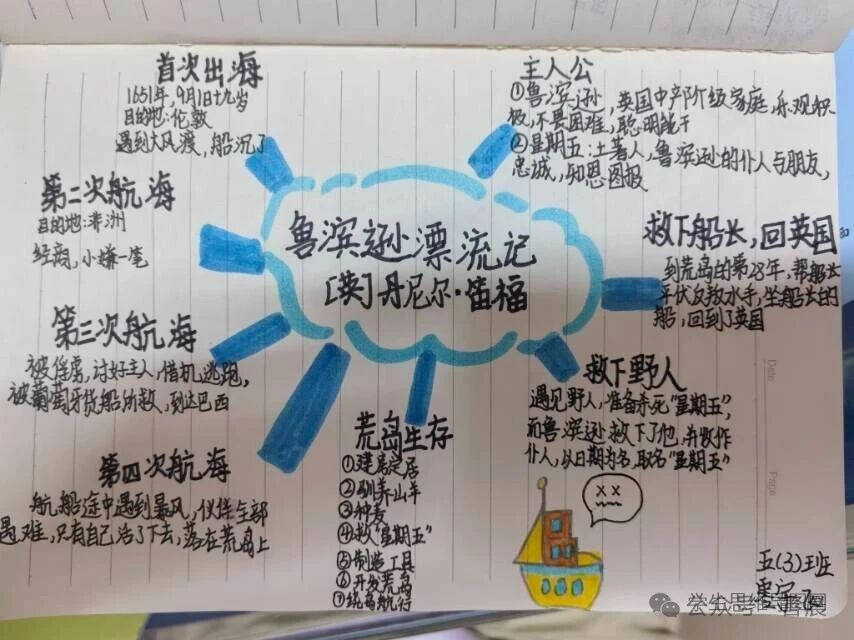 首次出海
1651年,9月1日十九岁
目的地:伦敦
遇到大风渡,船沉了
主人公
①鲁滨逊,英国中产阶级家庭,乐观积
极,不畏困难,聪明能干
②星期五:土著人,鲁滨逊的仆人与朋友,
忠诚,知恩图报
第二次航海
目的地:非洲
经商,小嫌一笔
鲁滨逊漂流记
[英]丹尼尔·笛福
救下船长,回英国
到荒岛的第28年,帮船长
平伏反叛水手,坐船长的
船,回到了英国
第三次航海
被俘虏,讨好主人,借机逃跑,
被葡萄牙货船所救,到达巴西
救下野人
遇见野人,准备杀死"星期五",
而鲁滨逊救下了他,并收作
仆人,以日期为名,取名"星期五"
第四次航海
航船途中遇到暴风,伙伴全部
遇难,只有自己活了下去,落在荒岛上
荒岛生存
①建房定居
②驯养山羊
③种麦
④救"星期五"
⑤制造工具
⑥开发荒岛
⑦绕岛航行
Date
Page
五(3)班